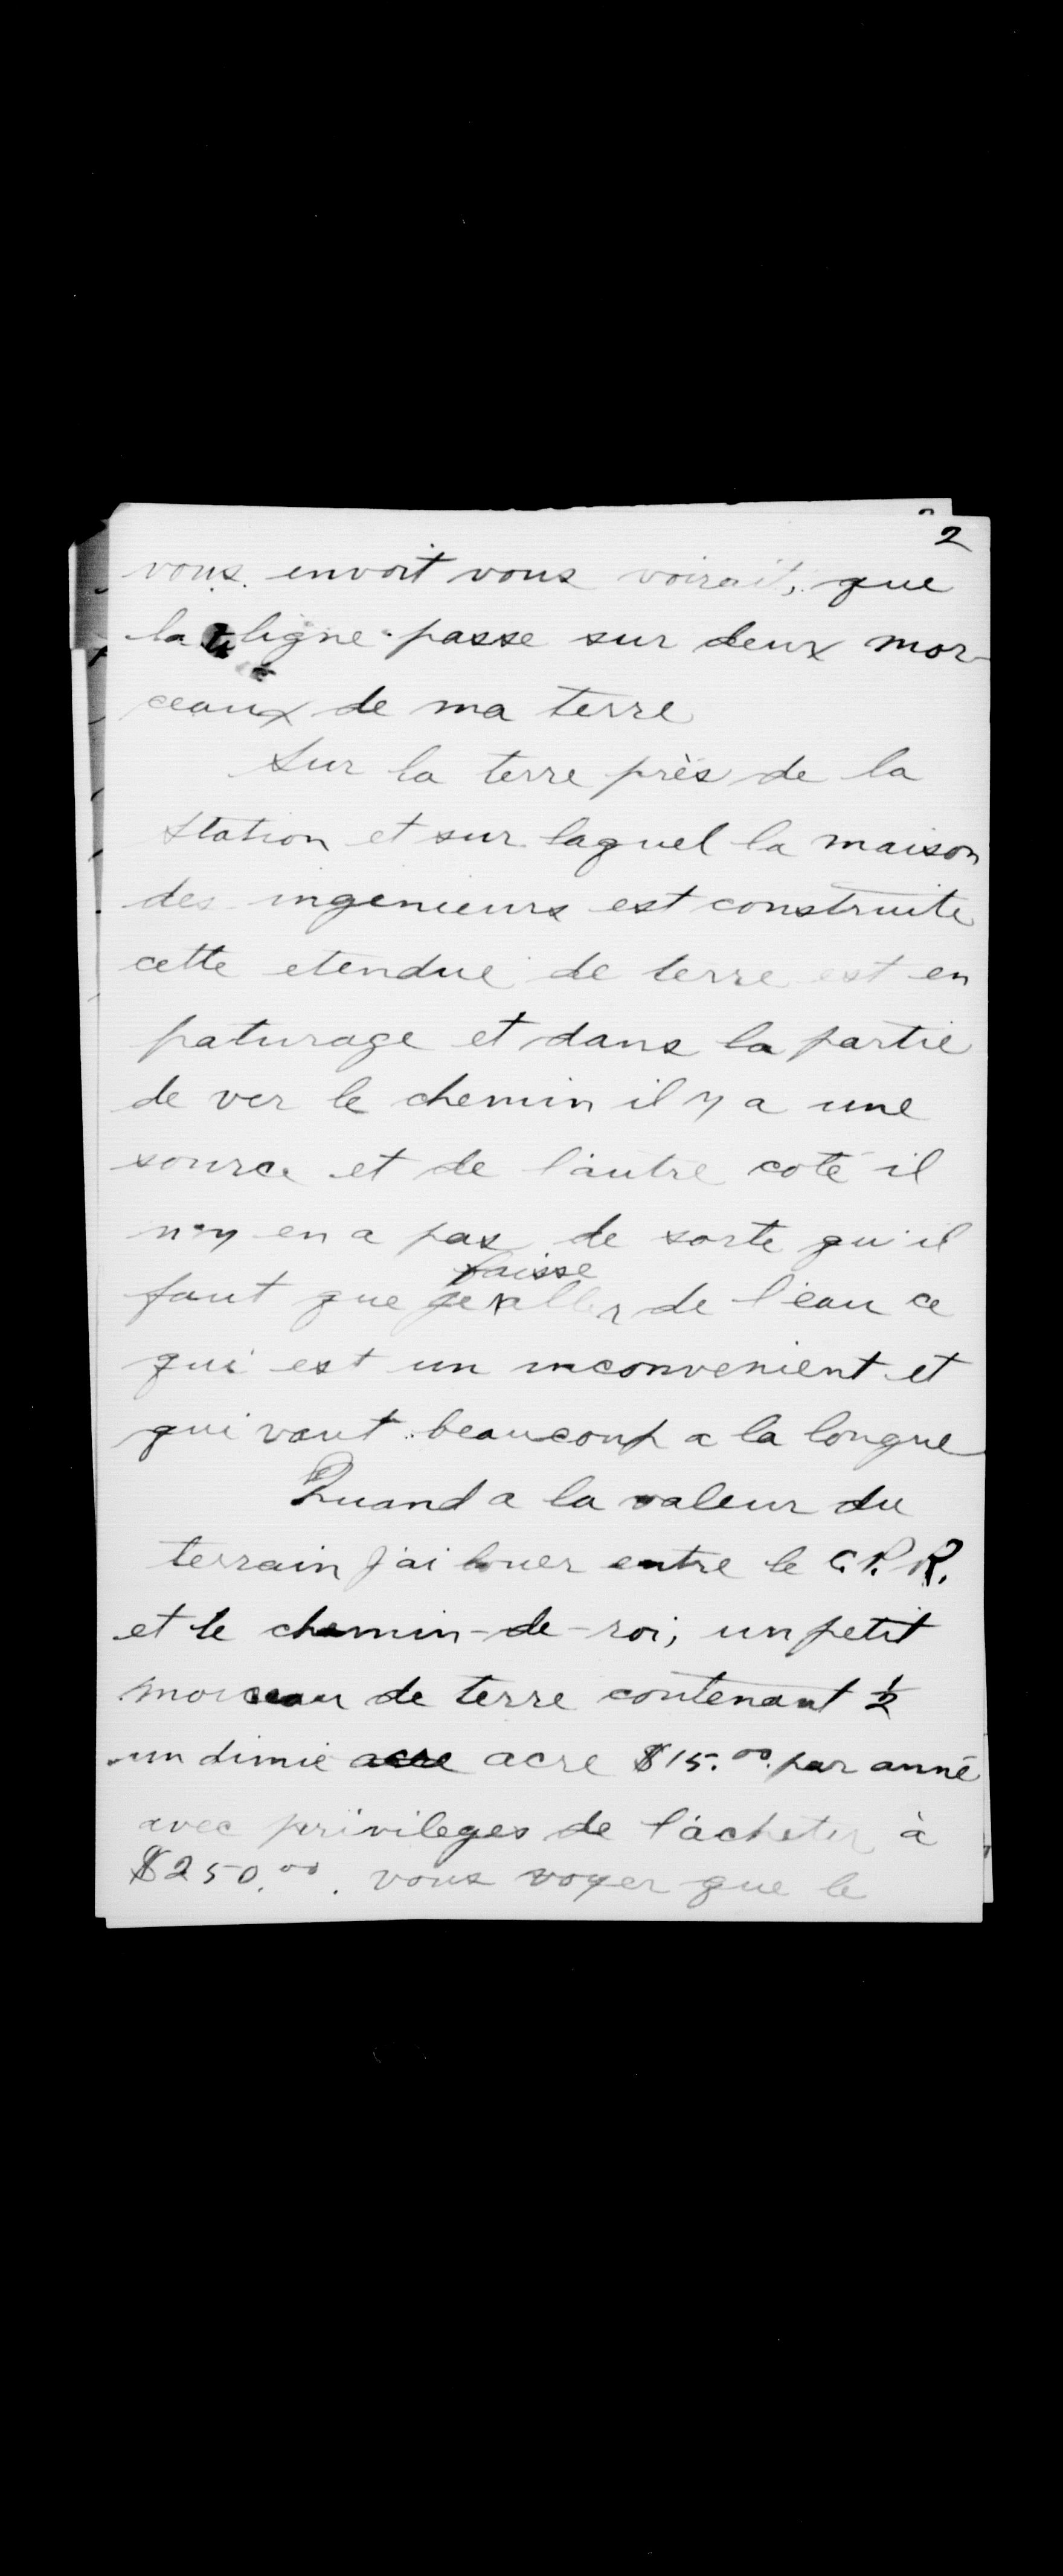 2
vous envoit vous voirait, que
la ligne passe sur deux mor-
ceaux de ma terre
Sur la terre près de la
Station et sur laquel la maison
des ingenieurs est construite
cette etendue de terre est en
paturage et dans la partie
de ver le chemin il y a une
source et de l'autre coté il
n'y en a pas de sorte qu'il
faisse
faut que je aller de l'eau ce
qui est un inconvenient et
qui vaut beaucoup a la longue
Quand a la valeur du
terrain j'ai louer entre le C.P.R.
et le chemin-de-roi, un petit
morceau de terre contenant ½
un dimie acre acre $15.00 par anné
avec privileges de l'acheter à
$250.00. vous voyer que le